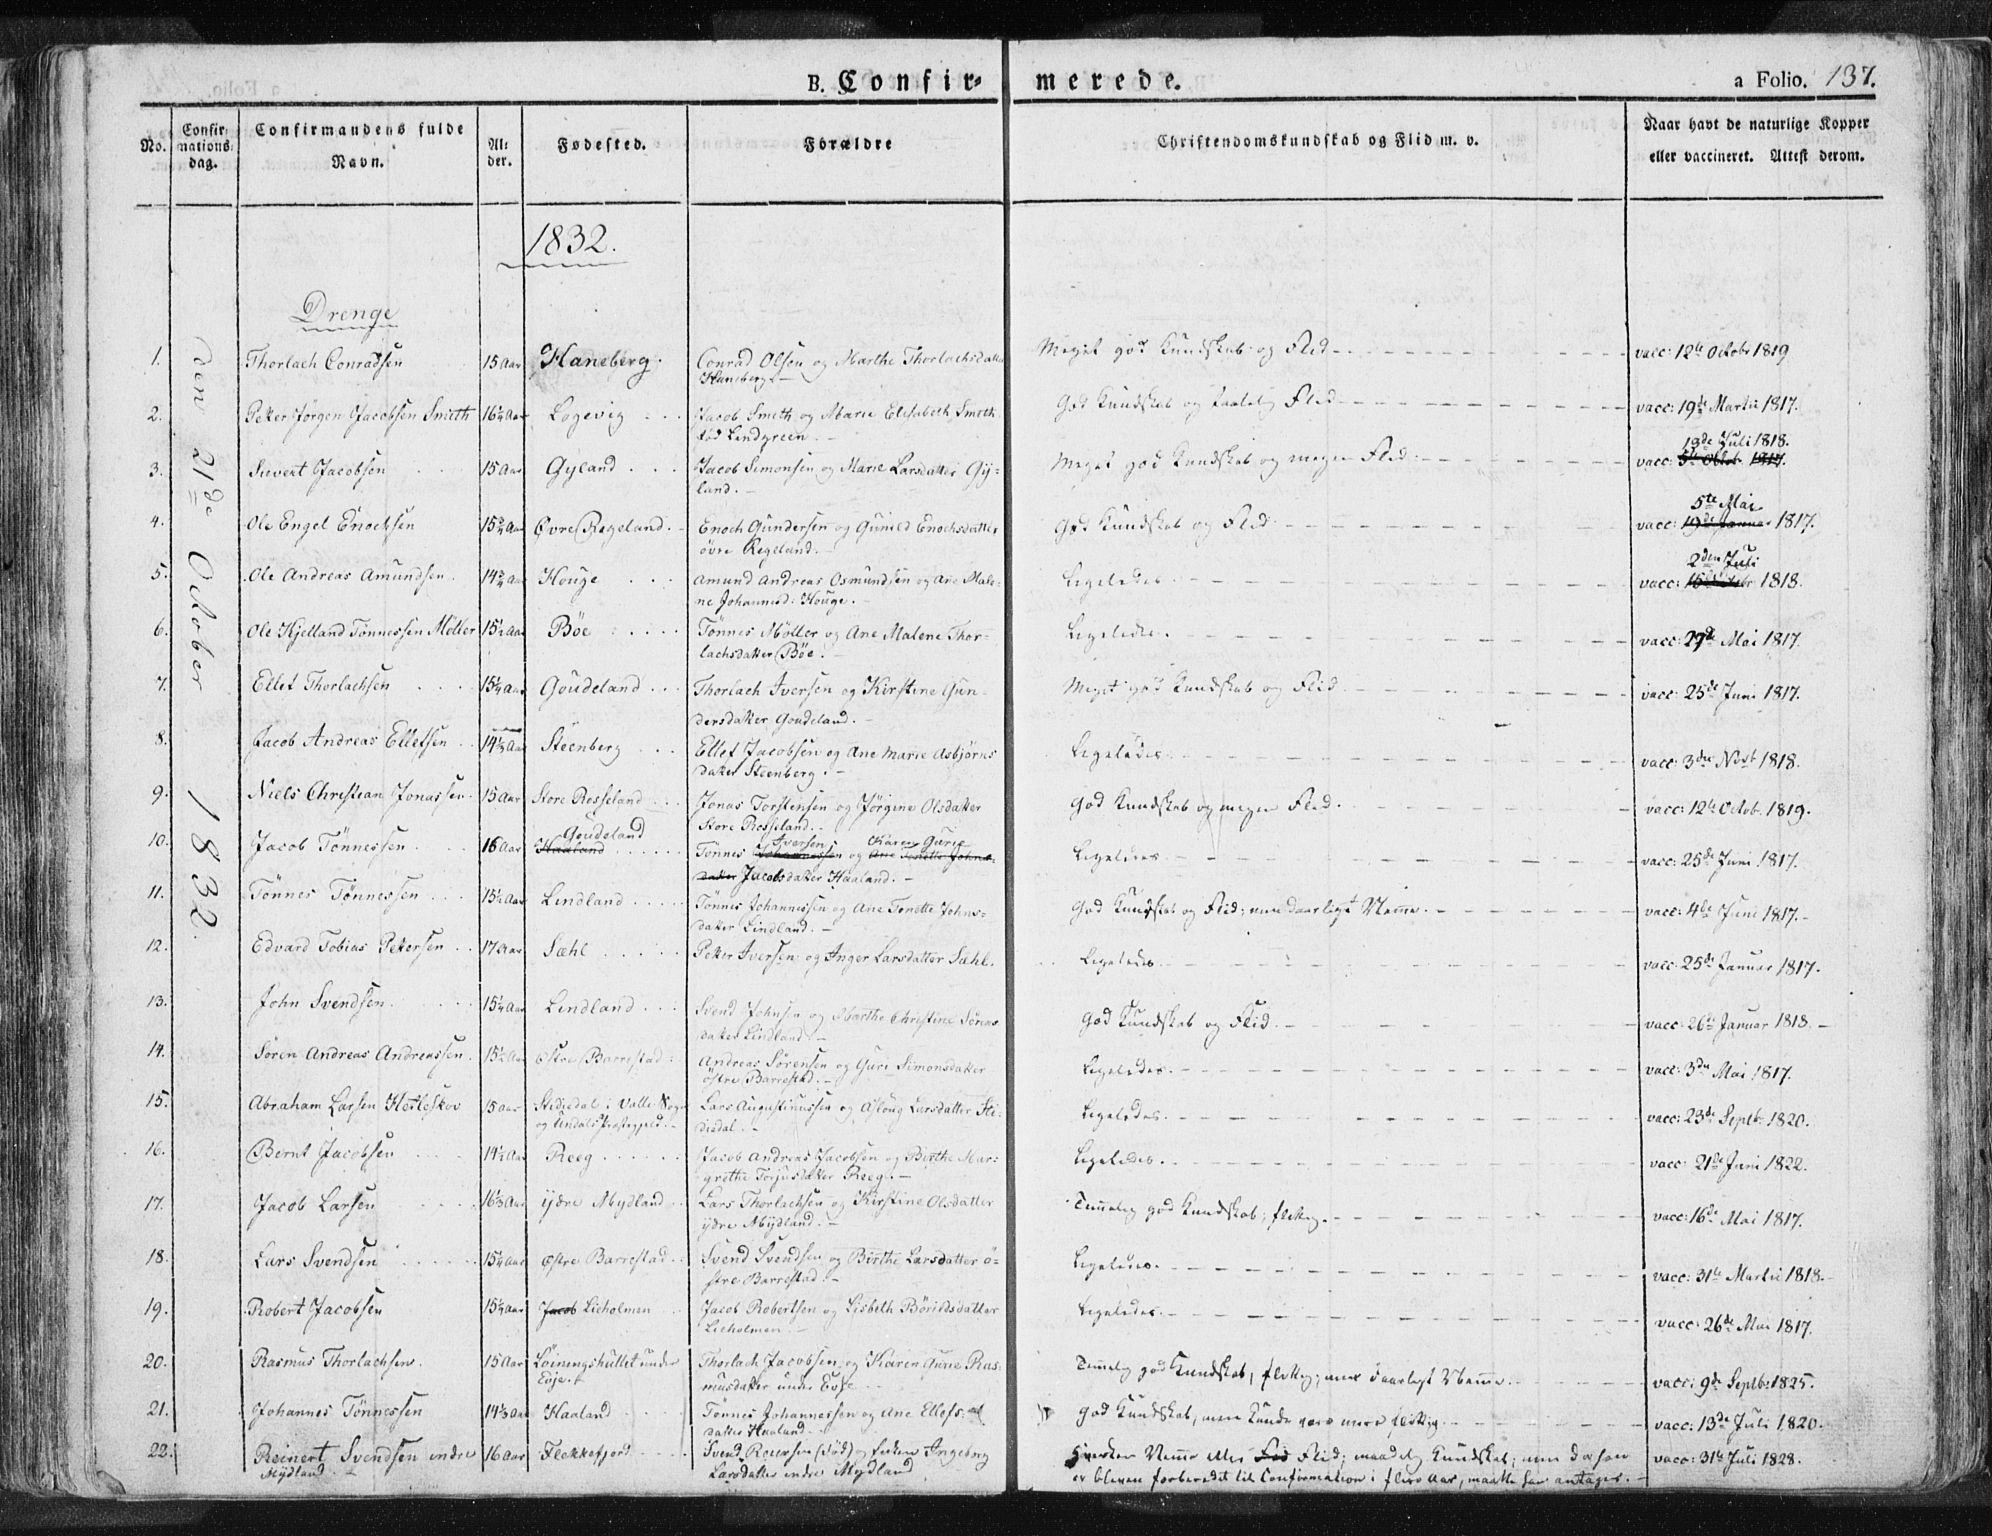 B. Confir- merede. a Folio. 137.
No. Confirmationsdag. Confirmandens fulde Navn. Alder. Fødested. Forældre Christendomskundskab og Flid m. v. Naar havt de naturlige Kopper eller vaccineret. Attest derom.
1832.
Drenge
den 21de October 1832.
1. Thorlach Conradsen 15 Aar Haneberg. Conrad Olsen og Marthe Thorlachsdatter Meget god Kundskab og Flid vacc: 12te Octobr 1819
Haneberg.
2. Peter Jørgen Jacobsen Smith 16¼ Aar Logevig Jacob Smith og Marie Elisabeth Smith God Kundskab og Flid vacc: 19de Martii 1817.
fød Lindgreen.
13de Juli 1818.
3. Sivert Jacobsen 15 Aar Gyland Jacob Simonsen og Marie Larsdatter Gy- Meget god Kundskab og megen Flid. vacc: 5te Octob. 1817.
land.
5te Mai
4. Ole Engel Enochsen 15¾ Aar Øvre Regeland. Enoch Gundersen og Gunild Enochsdatter God Kundskab og Flid vacc: 19de Januar 1817.
øvre Regeland.
2den Juli
5. Ole Andreas Amundsen. 14¾ Aar Houge Amund Andreas Osmundsen og Ane Male- Ligeledes vacc: 1818.
ne Johannesd: Houge.
6. Ole Kjelland Tønnessen Møller 15½ Aar Bøe Tønnes Møller og Ane Malene Thor- Ligeledes. vacc: 27de Mai 1817.
lachsdatter Bøe.
7. Ellef Thorlachsen 15¼ Aar Goudeland Thorlach Iversen og Kirstine Gun- Meget god Kundskab og Flid vacc: 25de Juni 1817.
dersdatter Goudeland.
8. Jacob Andreas Ellefsen 14⅓ Aar Steenberg Ellef Jacobsen og Ane Marie Asbjørns Ligeledes. vacc: 3die Novbr 1818.
datter Steenberg.
9. Niels Christian Jonassen 15 Aar Store Rosseland Jonas Torstensen og Jørgine Olsdatter God Kundskab og megen Flid. vacc: 12te Octob. 1819.
Store Rosseland.
Goudeland Iversen Karen Gurie
10. Jacob Tønnessen 16 Aar Haaland Tønnes Johannessen og Ane Tonette Johns- Ligeledes vacc: 25de Juni 1817.
datter Jacobsdatter Haaland.
11. Tønnes Tønnessen 15½ Aar Lindland Tønnes Johannessen og Ane Tonette Johns- God Kundskab og Flid; men daarligt Nemme. vacc: 4de Juni 1817.
datter Lindland.
12. Edvard Tobias Petersen 17 Aar Sæhl Peter Iversen og Inger Larsdatter Sæhl. Ligeledes vacc: 25de Januar 1817.
13. John Svendsen 15¼ Aar Lindland Svend Johnsen og Marthe Christine Sørens God Kundskab og Flid. vacc: 26de Januar 1818.
datter Lindland.
14. Søren Andreas Andreassen. 15½ Aar østre Barrestad Andreas Sørensen og Guri Simonsdatter Ligeledes. vacc: 3die Mai 1817.
østre Barrestad.
15. Abraham Larsen 15 Aar Stedjedal i Valle Sogn Lars Augustinussen og Aslaug Larsdatter Sti- Ligeledes. vacc: 23de Septb. 1820.
og Undals Præstegjeld. disdal.
16. Bernt Jacobsen 14½ Aar Reeg Jacob Andreas Jacobsen og Birthe Mar- Ligeledes. vacc: 21de Juni 1822.
grethe Torjusdatter Reeg.
17. Jacob Larsen 16⅓ Aar ydre Mydland Lars Thorlachsen og Kirstine Olsdatter Temmelig god Kundskab; flittig. vacc: 16de Mai 1817.
ydre Mydland.
18. Lars Svendsen 15¼ Aar østre Barrestad Svend Svendsen og Birthe Larsdatter ø- Ligeledes. vacc: 31te Martii 1818.
stre Barrestad.
19. Robert Jacobsen 15¼ Aar Jacob Lieholmen Jacob Robertsen og Lisbeth Børildsdatter Ligeledes. vacc: 26de Mai 1817.
Lieholmen.
20. Rasmus Thorlachsen. 15 Aar Løiningshullet under Thorlach Jacobsen og Karen Gurie Ras- Temmelig god Kundskab, flittig; men daarligt Nemme. vacc: 9de Septb: 1825.
Eøje. musdatter under Eøje
21. Johannes Tønnessen 14⅓ Aar Haaland Tønnes Johannessen og Ane Ellefs- God Kundskab, men kunde være mere flittig. vacc: 13de Juli 1820.
datter Haaland.
22. Reinert Svendsen indre 16 Aar Flekkefjord Svend (død) og Enken Ingeborg Hverken Nemme eller Flid; maadelig Kundskab; men da han vacc: 31te Juli 1828.
Mydland Larsdatter indre Mydland er bleven forberedet til Confirmation i flere Aar, maatte han antages.